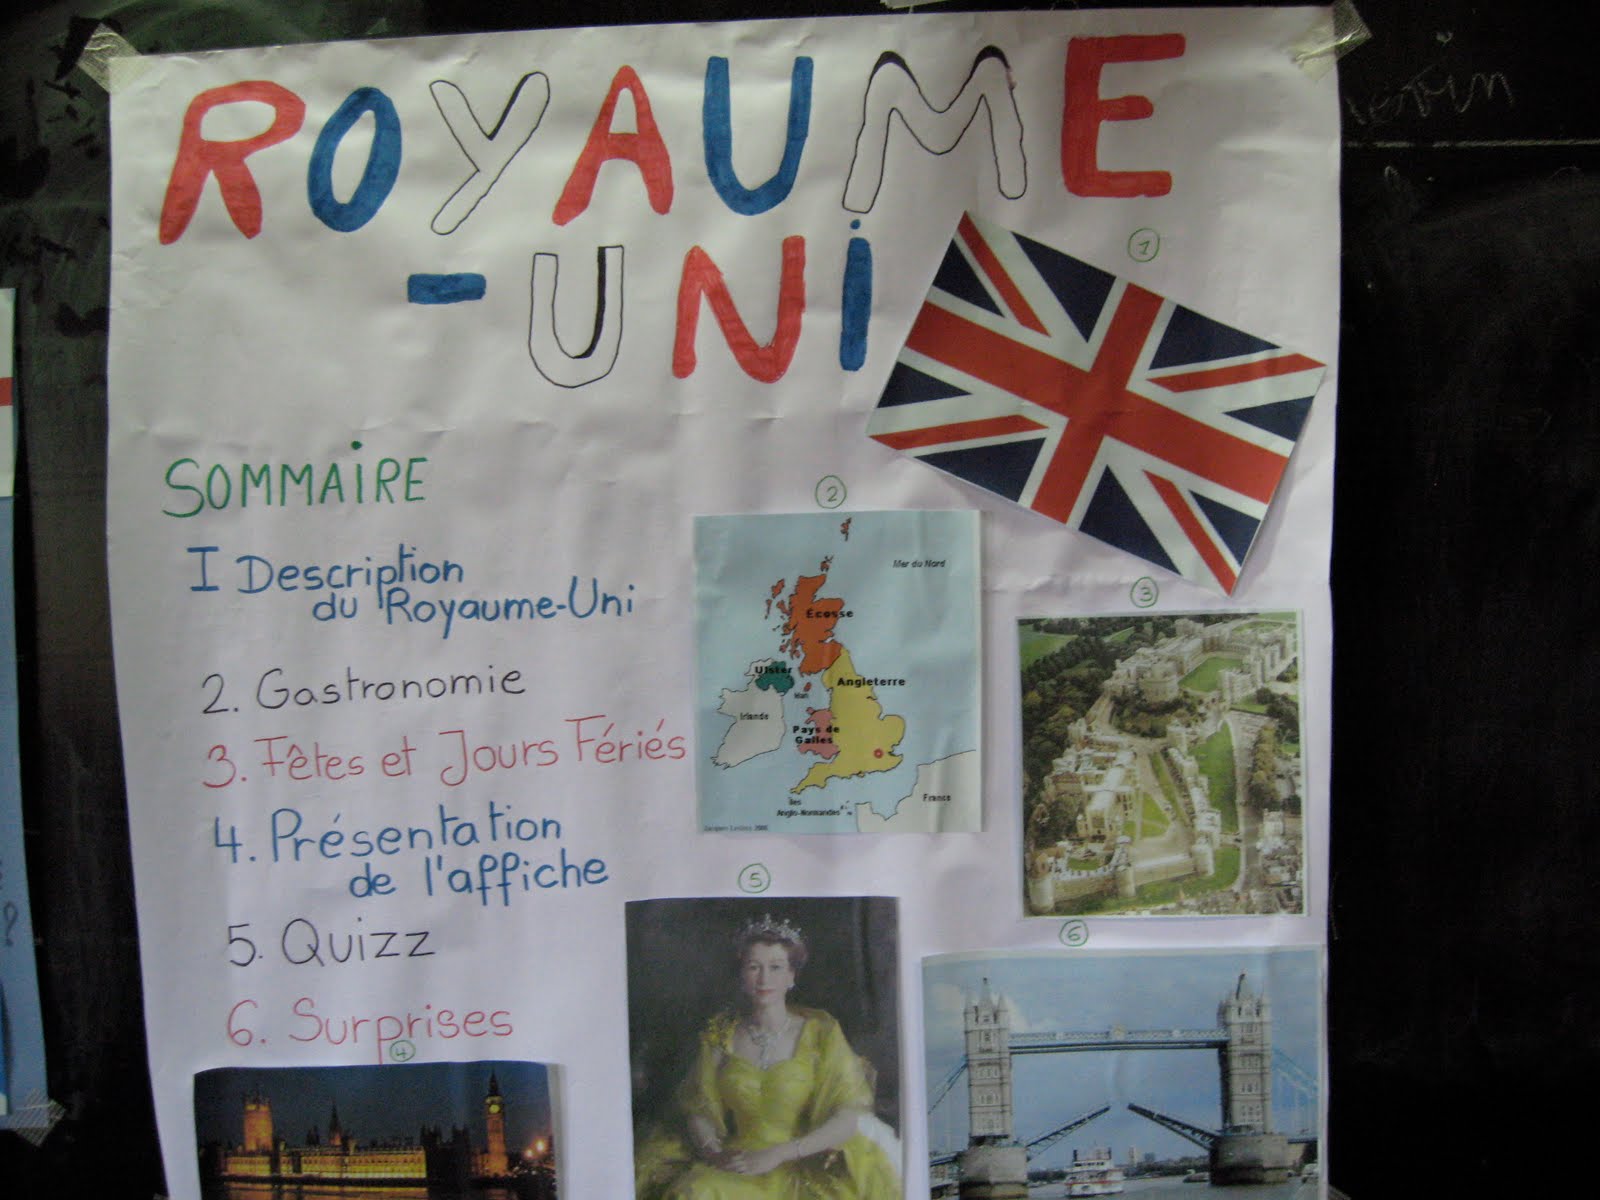 ROYAUME
-UNi
1
SOMMAiRE
2
I Description
du Royaume-Uni
3
2. Gastronomie
3. Fêtes et Jours Fériés
4. Présentation
de l'affiche
5. Quizz
6. Surprises
Mer du Nord
Écosse
Ulster
Man
Angleterre
Irlande
Pays de
Galles
France
Îles
Anglo-Normandes
5
6
4
?